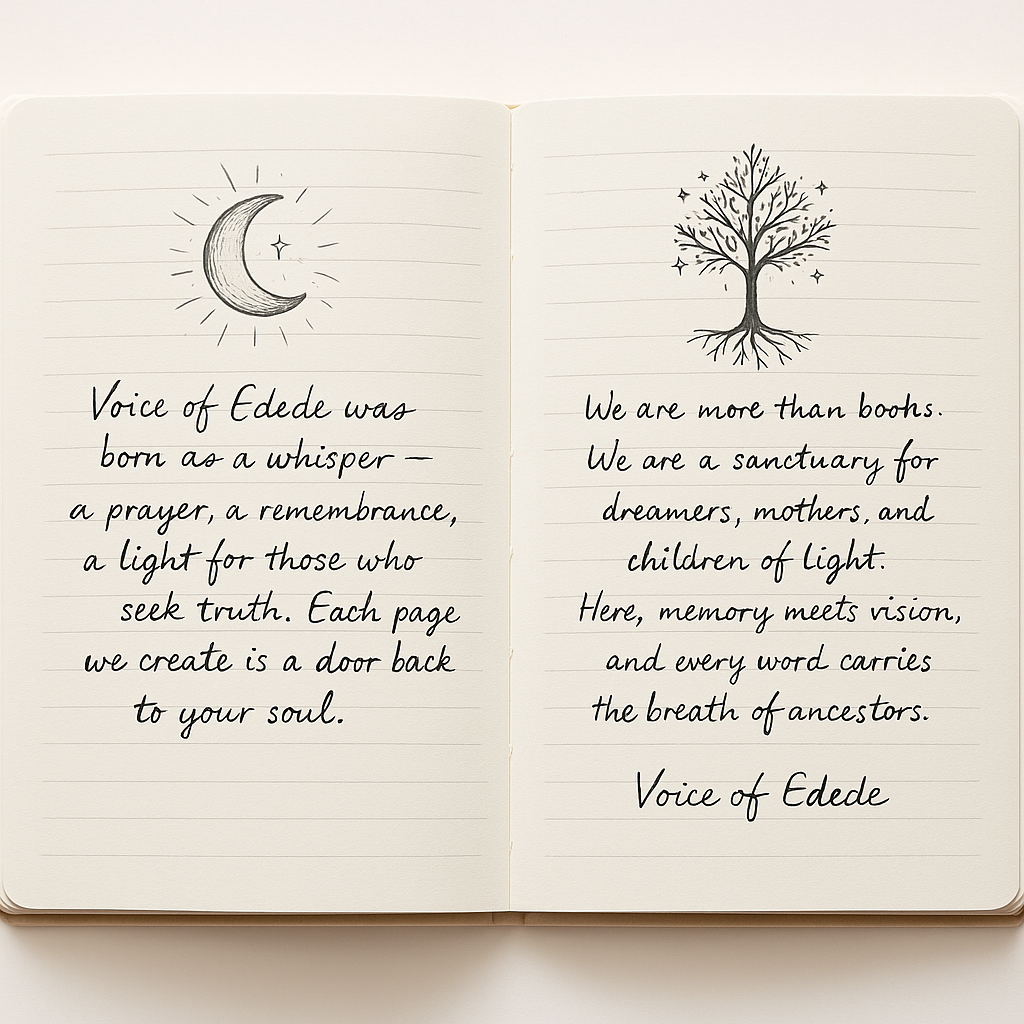 Voice of Edede was
born as a whisper —
a prayer, a remembrance,
a light for those who
seek truth. Each page
we create is a door back
to your soul.
We are more than books.
We are a sanctuary for
dreamers, mothers, and
children of Light.
Here, memory meets vision,
and every word carries
the breath of ancestors.
Voice of Edede